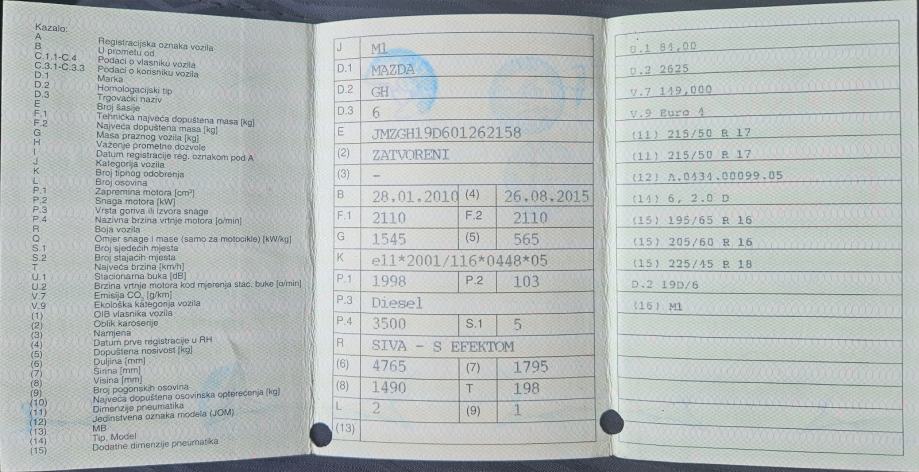 Kazalo:
A Registracijska oznaka vozila
B U prometu od
C.1.1-C.4 Podaci o vlasniku vozila
C.3.1-C.3.3 Podaci o korisniku vozila
D.1 Marka
D.2 Homologacijski tip
D.3 Trgovački naziv
E Broj šasije
F.1 Tehnička najveća dopuštena masa [kg]
F.2 Najveća dopuštena masa [kg]
G Masa praznog vozila [kg]
H Važenje prometne dozvole
I Datum registracije reg. oznakom pod A
J Kategorija vozila
K Broj tipnog odobrenja
L Broj osovina
P.1 Zapremina motora [cm³]
P.2 Snaga motora [kW]
P.3 Vrsta goriva ili izvora snage
P.4 Nazivna brzina vrtnje motora [o/min]
R Boja vozila
Q Omjer snage i mase (samo za motocikle) [kW/kg]
S.1 Broj sjedećih mjesta
S.2 Broj stajaćih mjesta
T Najveća brzina [km/h]
U.1 Stacionarna buka [dB]
U.2 Brzina vrtnje motora kod mjerenja stac. buke [o/min]
V.7 Emisija CO₂ [g/km]
V.9 Ekološka kategorija vozila
(1) OIB vlasnika vozila
(2) Oblik karoserije
(3) Namjena
(4) Datum prve registracije u RH
(5) Dopuštena nosivost [kg]
(6) Duljina [mm]
(7) Širina [mm]
(8) Visina [mm]
(9) Broj pogonskih osovina
(10) Najveća dopuštena osovinska opterećenja [kg]
(11) Dimenzije pneumatika
(12) Jedinstvena oznaka modela (JOM)
(13) MB
(14) Tip, Model
(15) Dodatne dimenzije pneumatika
J M1
D.1 MAZDA
D.2 GH
D.3 6
E JMZGH19D601262158
(2) ZATVORENI
(3) –
B 28.01.2010 (4) 26.08.2015
F.1 2110 F.2 2110
G 1545 (5) 565
K e11*2001/116*0448*05
P.1 1998 P.2 103
P.3 Diesel
P.4 3500 S.1 5
R SIVA - S EFEKTOM
(6) 4765 (7) 1795
(8) 1490 T 198
L 2 (9) 1
(13)
U.1 84,00
U.2 2625
V.7 149,000
V.9 Euro 4
(11) 215/50 R 17
(11) 215/50 R 17
(12) A.0434.00099.05
(14) 6, 2.0 D
(15) 195/65 R 16
(15) 205/60 R 16
(15) 225/45 R 18
D.2 19D/6
(16) M1